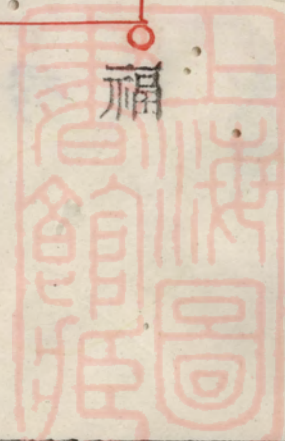 福
上海圖
書館藏